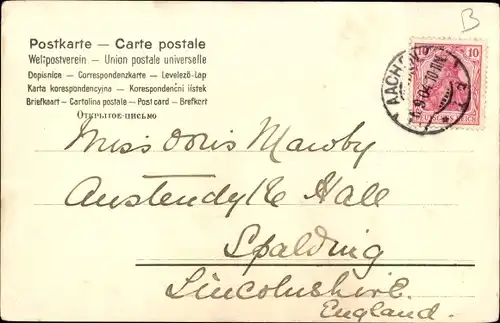 B
Postkarte — Carte postale
Weltpostverein — Union postale universelle
Dopisnice — Correspondenzkarte — Levelező-Lap
Karta korespondencyjna — Korespondenční listek
Briefkaart — Cartolina postale — Post card — Brefkort
Открытое письмо
10 10
AACHEN
DEUTSCHES REICH
Miss Doris Mawby
Hall
Spalding
Lincolnshire.
England.